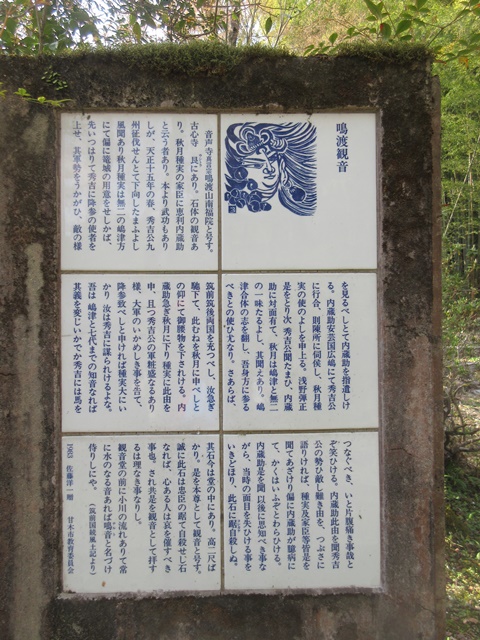 鳴渡観音
音声寺鳴渡山南福院と号す。
古心寺　艮にあり。石体の観音あ
り。秋月種実の家臣に恵利内蔵助
と云う者あり。本より武功もあり
しが、天正十五年の春、秀吉公九
州征伐せんとて下向したまふよし
風聞あり秋月種実は無二の嶋津方
にて偏に篭城の用意をせしかば、
先いつはりて秀吉に降参の使者を
上せ、其軍勢をうかがひ、敵の様
を見るべしとて内蔵助を指遣しけ
る。内蔵助安芸国広嶋にて秀吉公
に行合、則陳所に伺侯し、秋月種
実の使のよしを申上る。浅野弾正
是をとり次　秀吉公聞たまひ、内蔵
助に対面有て、秋月は嶋津と無二
の一味たるよし、其聞えあり。嶋
津合体の志を翻し、吾身方に参る
べきとの使ひ尤なり。さあらば、
筑前筑後両国を充つべし、汝急ぎ
馳下て、此むねを秋月に申べしと
の仰にて御腰物を下されける。内
蔵助急ぎ秋月に下り種実に此由を
申、且つ秀吉公の軍粧盛なるあり
様、大軍のいかめしき事を告て、
降参致べしと申ければ種実大にい
かり　汝は秀吉に謀られけるよな。
吾は嶋津と七代までの知音なれば
其義を変じいかでか秀吉には馬を
つなぐべき、いと片腹痛き事哉と
ぞ笑ひける。内蔵助此由を聞秀吉
公の勢ひ敵し難き由を、つぶさに
語りければ、種実及家臣等皆是を
聞てあざけり偏に内蔵助が臆病に
て、かくはいふぞとわらひける。
内蔵助是を聞　以後に思知べき事な
がら、当時の面目を失ひける事を
いきどほり、此石に踞自殺しぬ。
其石今は堂の中にあり。高二尺ば
かり。是を本尊として観音と号す。
誠に此石は忠臣の踞て自殺せし石
なれば、心ある人は哀を催すべき
事也。され共是を観音として拝す
るは理なき事なりし。
観音堂の前に小川の流れありて常
に水のなる音あれば鳴音と名づけ
侍りしにや。　（筑前国続風土記より）
1983　佐藤洋一　甘木市教育委員会